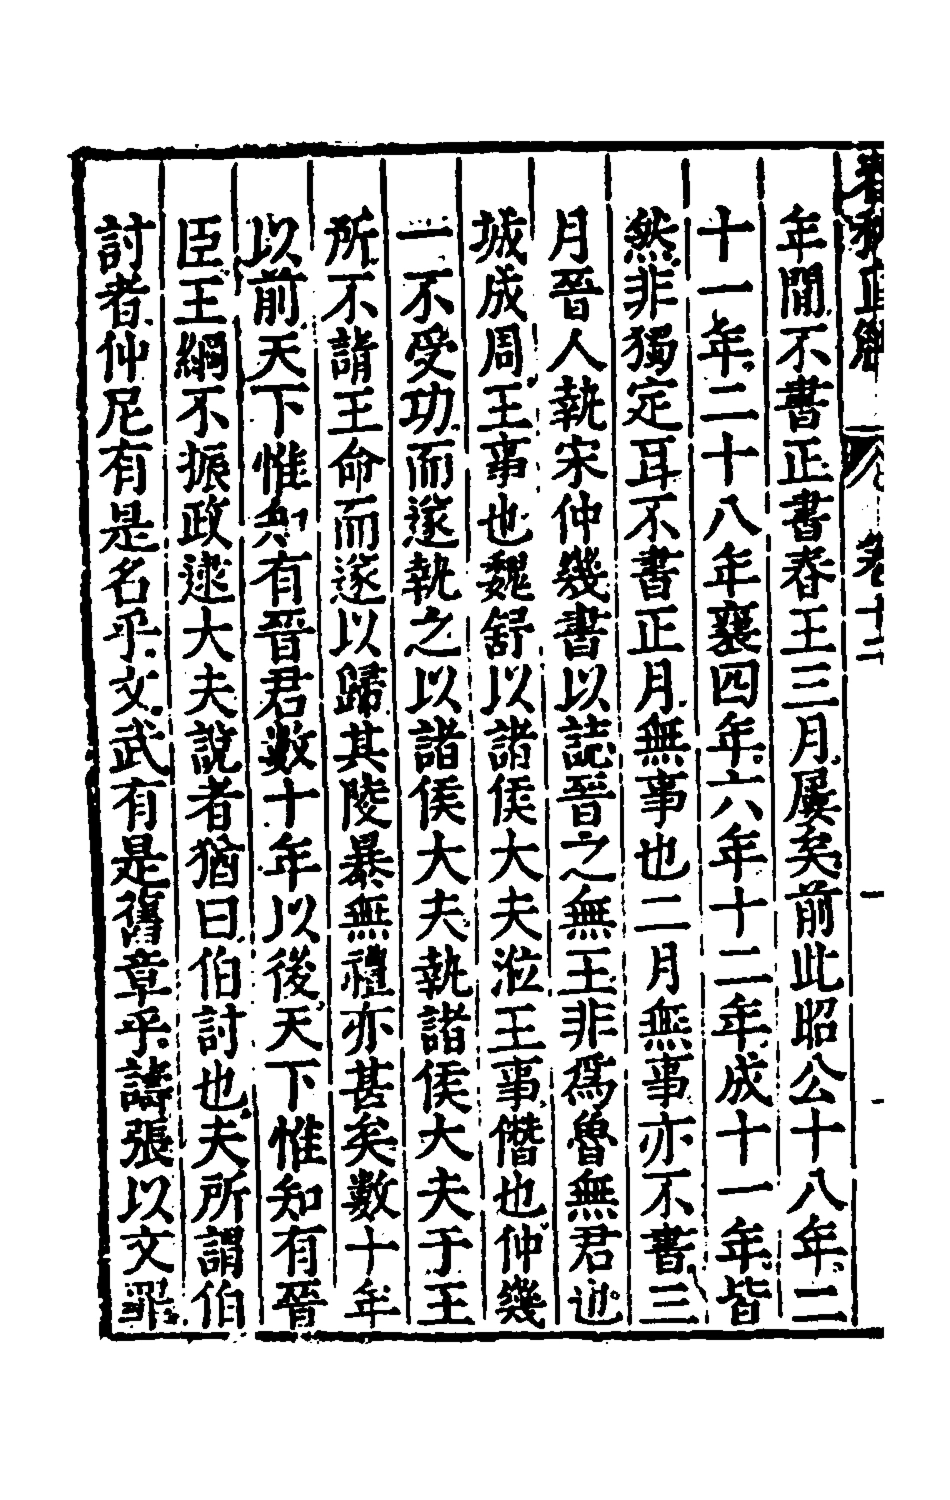 春秋直解 卷十二
年間不書正書春王三月屢矣前此昭公十八年二
十一年二十八年襄四年六年十二年成十一年皆
然非獨定耳不書正月無事也二月無事亦不書三
月晉人執宋仲幾書以誌晉之無王非爲魯無君也
城成周王事也魏舒以諸侯大夫涖王事僭也仲幾
一不受功而遂執之以諸侯大夫執諸侯大夫于王
所不請王命而遂以歸其陵暴無禮亦甚矣數十年
以前天下惟知有晉君數十年以後天下惟知有晉
臣王綱不振政逮大夫說者猶曰伯討也夫所謂伯
討者仲尼有是名乎文武有是舊章乎譸張以文罪